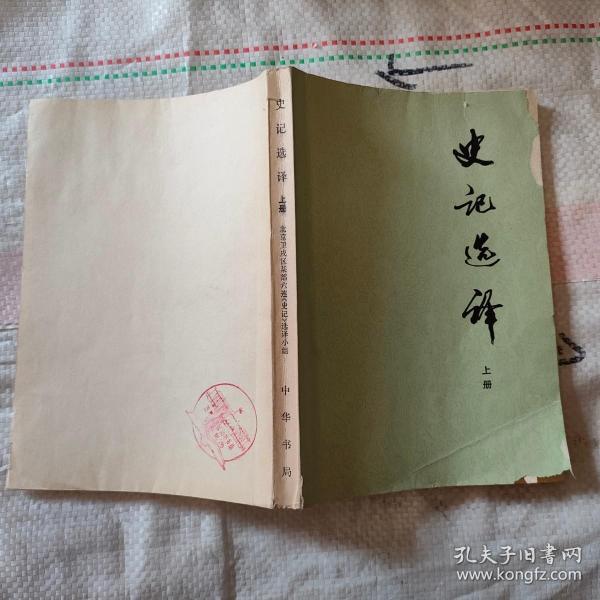 史记选译
上册
史记选译 上册 北京卫戍区某部六连《史记》选译小组 中华书局
孔夫子旧书网
www.kongfz.com